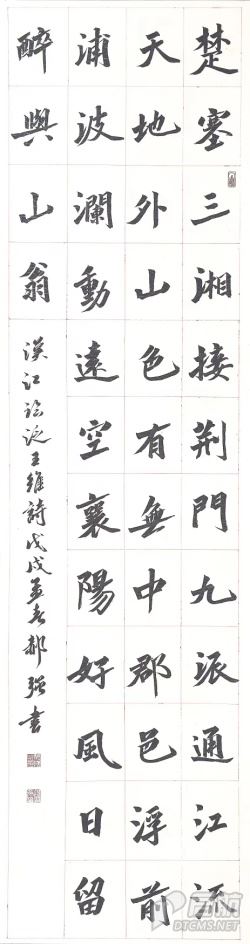 楚塞三湘接荆門九派通江流
天地外山色有無中郡邑浮前
浦波瀾動遠空襄陽好風日留
醉與山翁
漢江臨泛王維詩戊戌孟春郝强書
DTCMS.NET